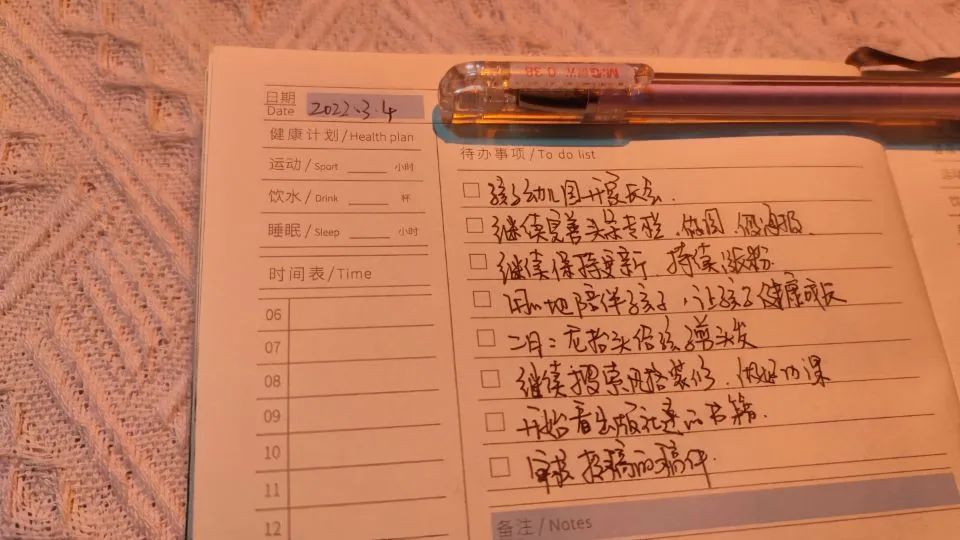 M&G 0.38
日期
Date 2022.3.4
健康计划/Health plan
运动/Sport 小时
饮水/Drink 杯
睡眠/Sleep 小时
时间表/Time
06
07
08
09
10
11
12
待办事项/To do list
孩子幼儿园开家长会.
继续完善头条专栏,做图,做海报.
继续保持更新 持续涨粉.
用心地陪伴孩子,让孩子健康成长
二月二龙抬头给孩剪头发
继续探索风格装修,做好功课
开始看出版社寄的书籍.
审核投稿的稿件.
备注/Notes